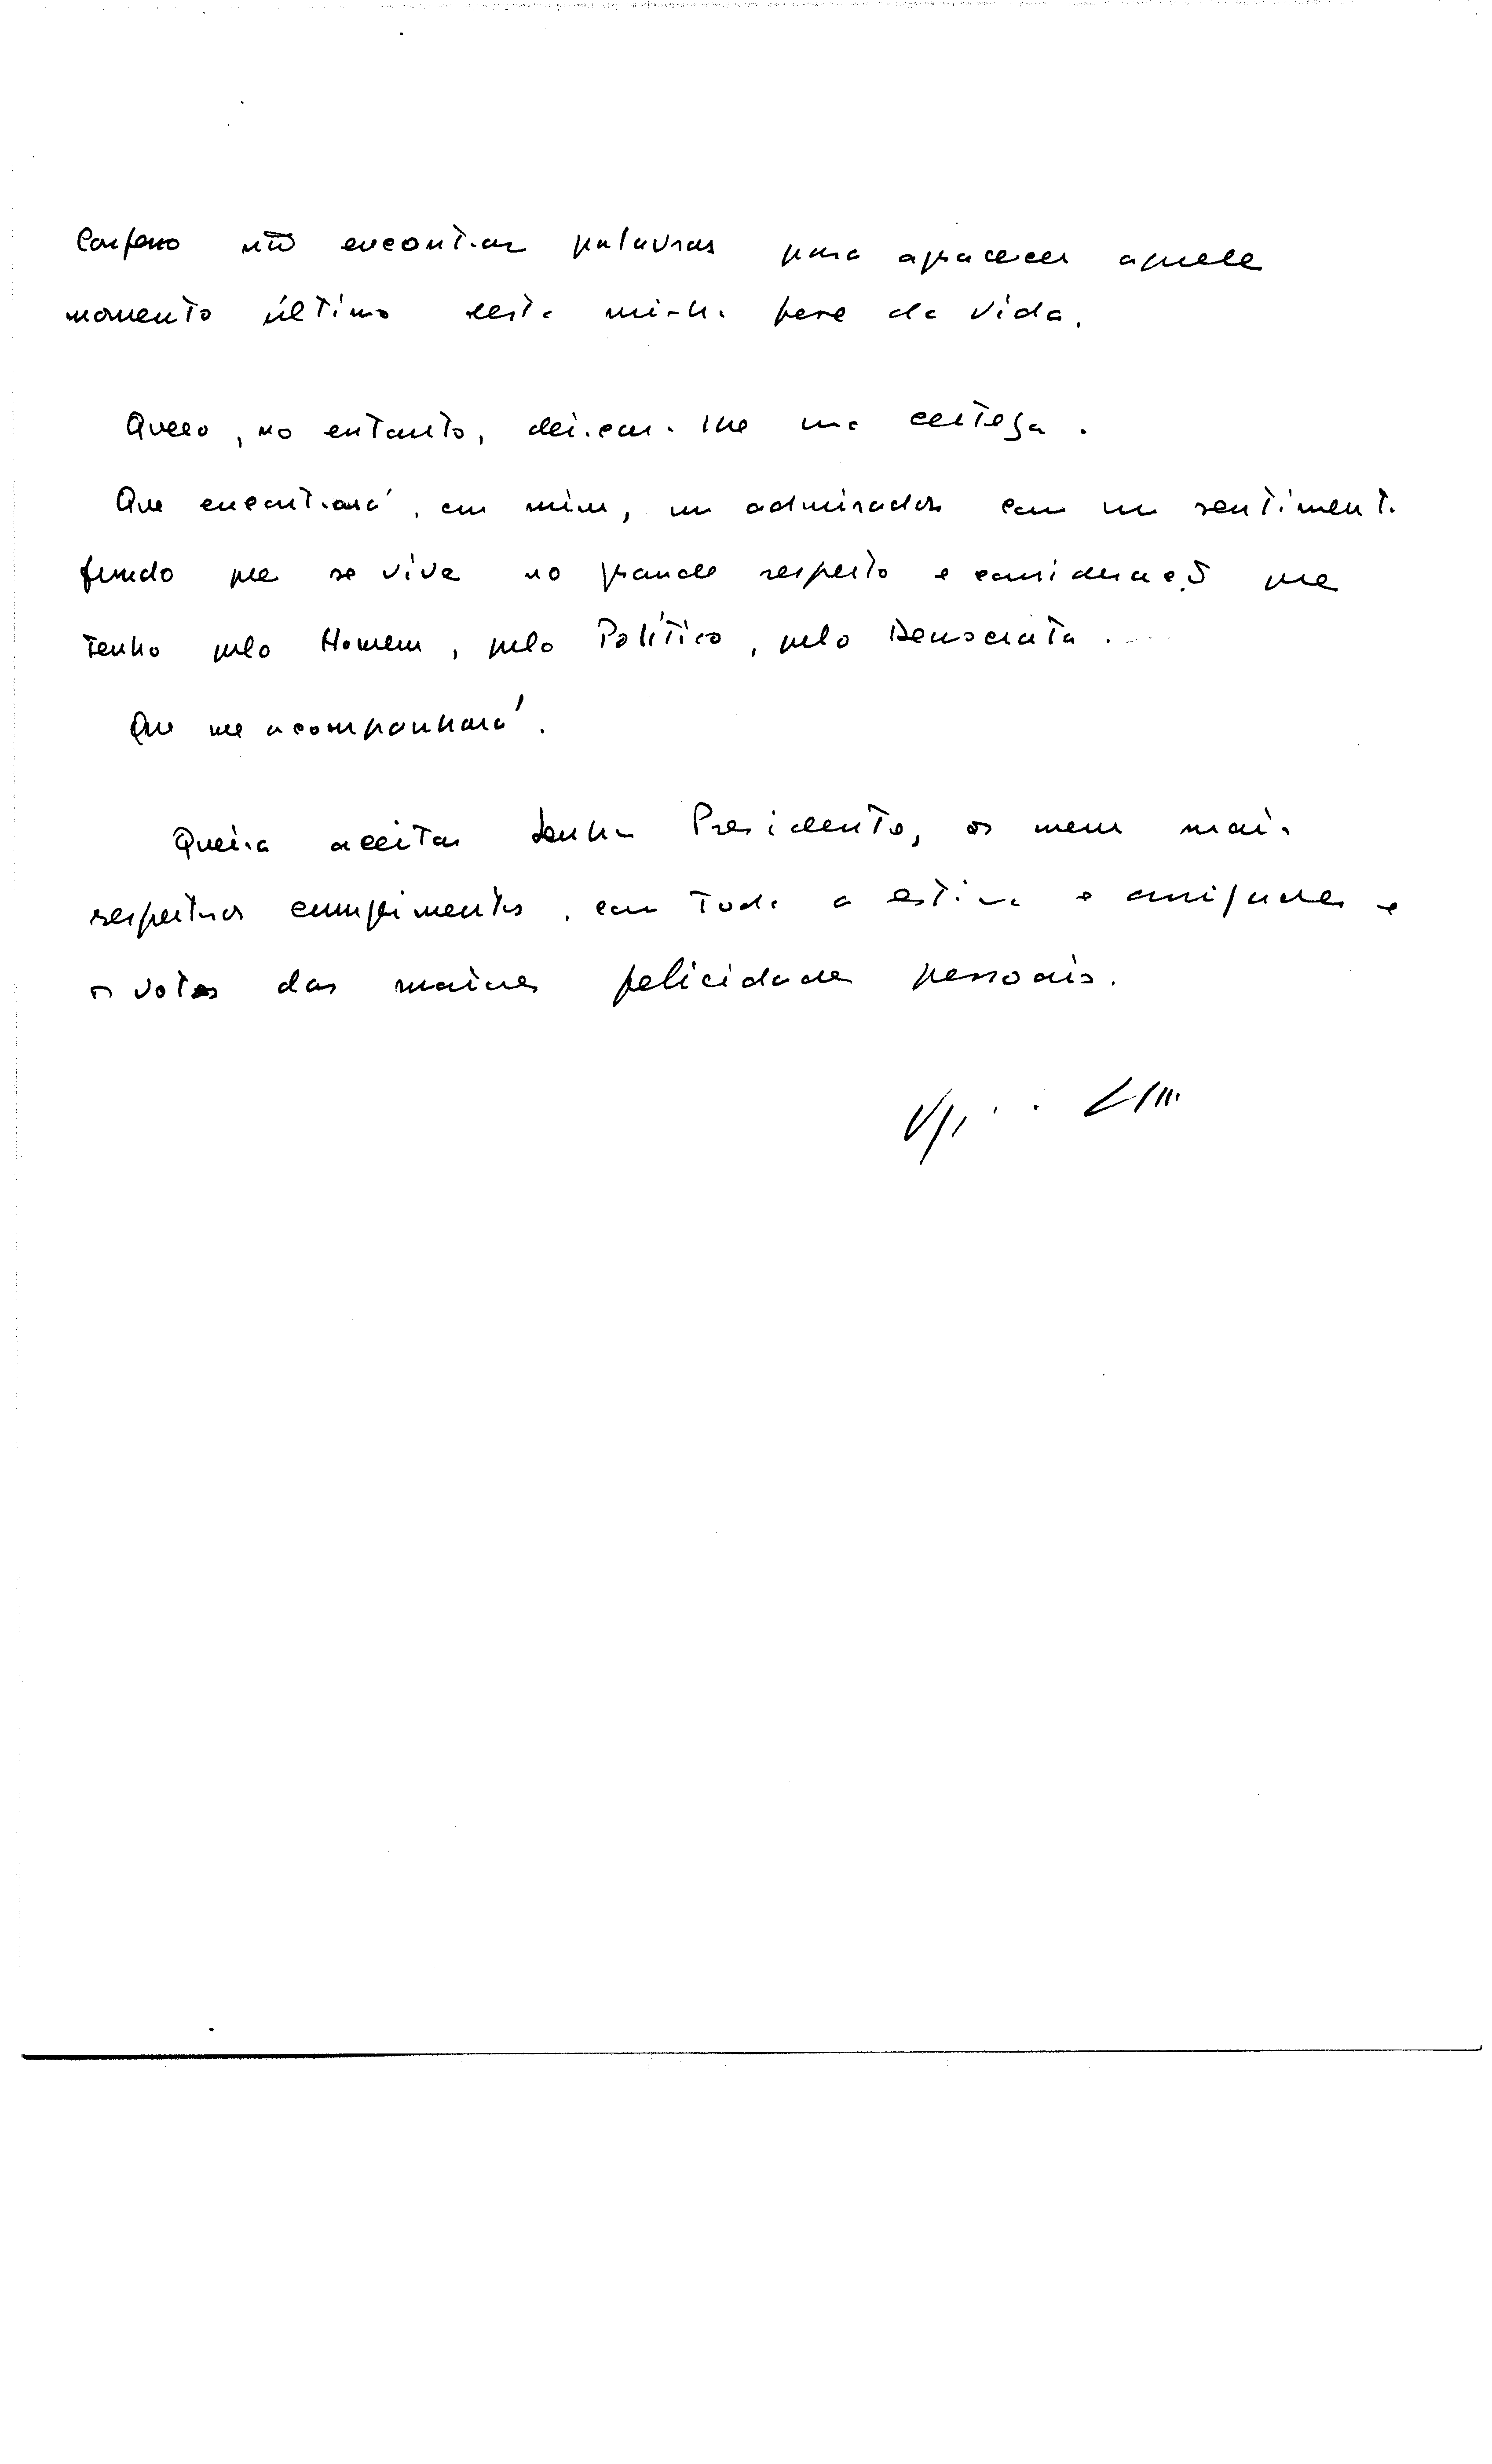 Confesso não encontrar palavras para agradecer aquele
momento último desta minha fase da vida.
Quero, no entanto, deixar-lhe uma certeza.
Que encontrará, em mim, um admirador com um sentimento
fundo que se vive no grande respeito e consideração que
tenho pelo Homem, pelo Político, pelo Democrata.
Que me acompanhará.
Queira aceitar Senhor Presidente, os meus mais
respeitosos cumprimentos, com toda a estima e amizade e
os votos das maiores felicidades pessoais.